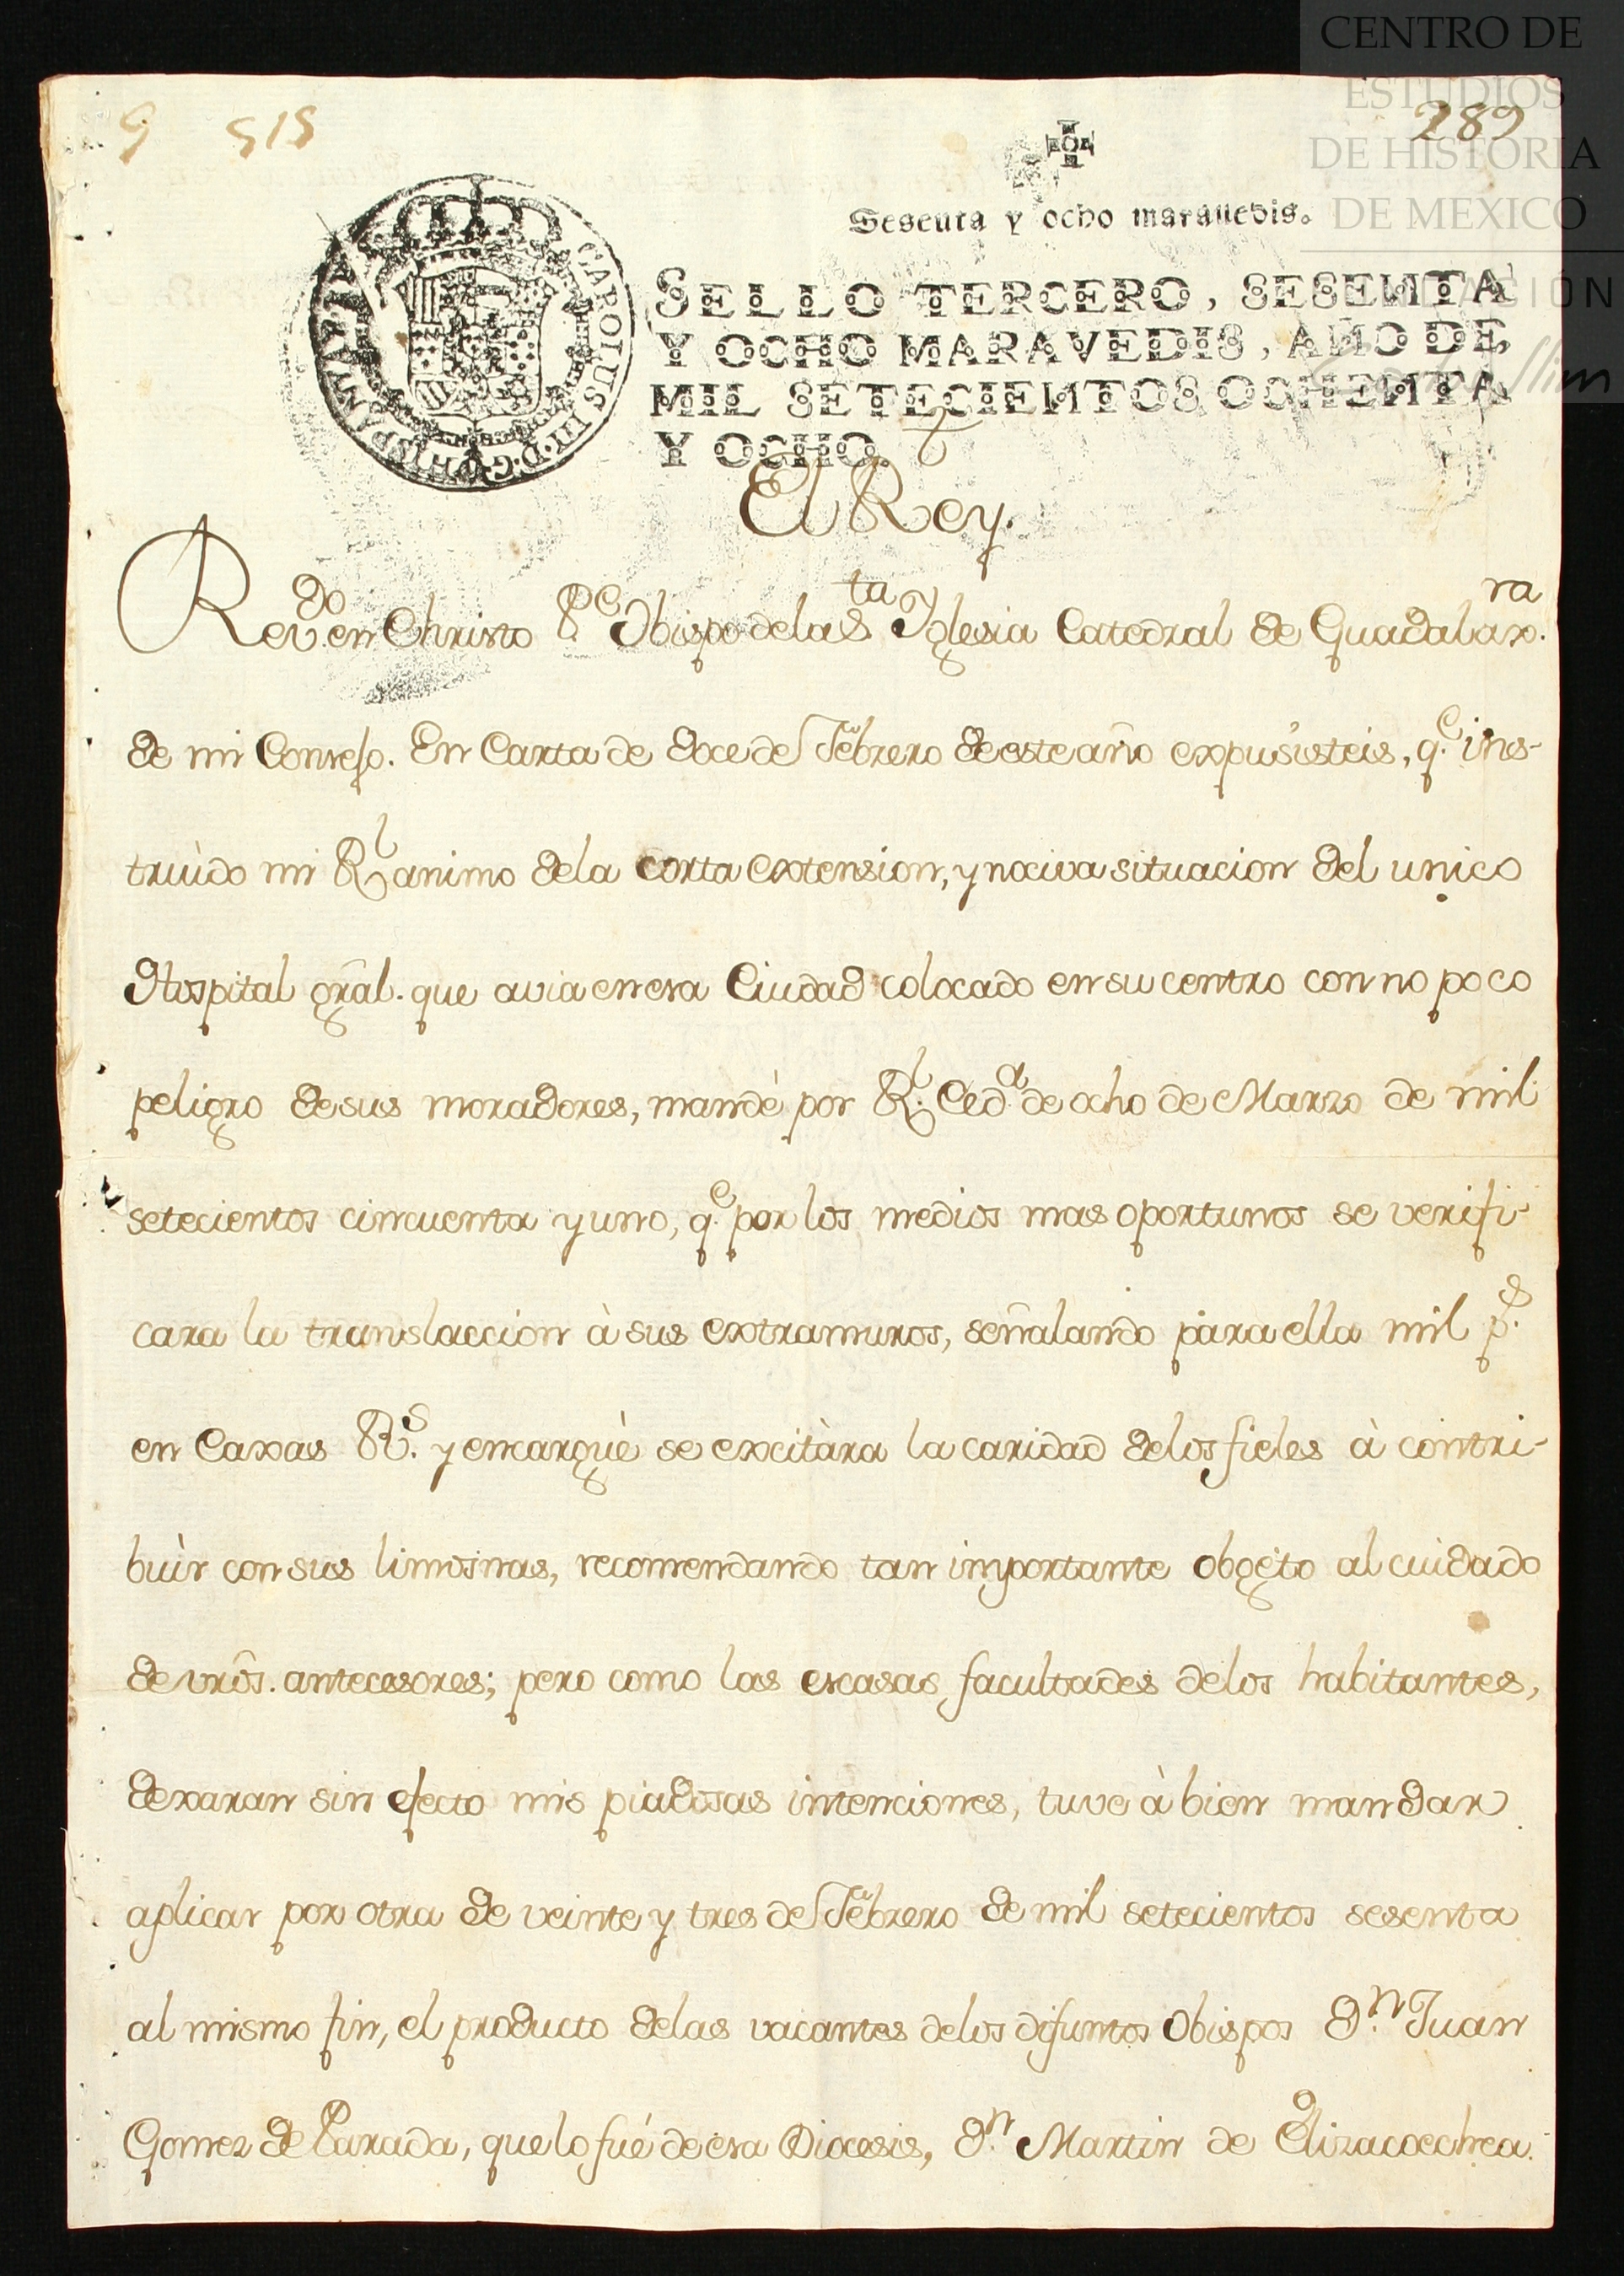 CENTRO DE
ESTUDIOS
DE HISTORIA
DE MEXICO
9 515
289
Sesenta y ocho marauedis.
CAROLUS III D. G. HISPANIAR
SELLO TERCERO, SESENTA
Y OCHO MARAVEDIS, AÑO DE
MIL SETECIENTOS OCHENTA
Y OCHO.
El Rey.
Rev.do en Christo P.e Obispo de la S.ta Yglesia Catedral de Guadalax.ra
de mi Consejo. En Carta de doce de Febrero de este año expusisteis, q.e ins-
truìdo mi R.l animo de la corta extension, y nociva situacion del unico
Hospital grãl. que avia en esa Ciudad colocado en su centro con no poco
peligro de sus moradores, mandè por R.l Ced.a de ocho de Marzo de mil
setecientos cincuenta y uno, q.e por los medios mas oportunos se verifi-
cara la translaccion à sus extramuros, señalando para ella mil p.s
en Caxas R.s y encarguè se excitàra la caridad de los fieles à contri-
buìr con sus limosnas, recomendando tan importante obgeto al cuidado
de vrõs. antecesores; pero como las escasas facultades de los habitantes,
dexaran sin efecto mis piadosas intenciones, tuve à bien mandar
aplicar por otra de veinte y tres de Febrero de mil setecientos sesenta
al mismo fin, el producto de las vacantes de los difuntos Obispos D.n Juan
Gomez de Parada, que lo fué de esa Diocesis, D.n Martin de Elizacoechea.